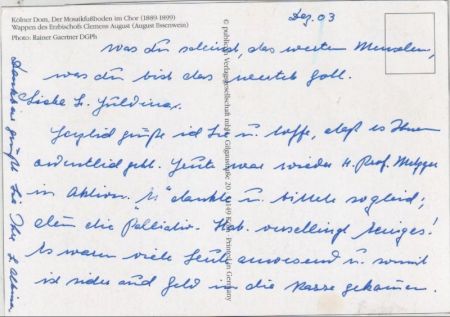 Kölner Dom, Der Mosaikfußboden im Chor (1889-1899)
Wappen des Erzbischofs Clemens August (August Essenwein)
Photo: Rainer Gaertner DGPh
Dez. 03
was du scheinst, das werten Menschen,
was du bist das wertet Gott.
Liebe
Herzlich grüße ich Sie u. hoffe, daß es Ihnen
ordentlich geht. Heute war wieder H. Prof. Metzger
in Aktion. "Er" dankte u. bittete sogleich;
die Palliativ. Hab. einiges!
Es waren viele Leute anwesend u. somit
ist sicher auch Geld in die Kasse gekommen.
Dankbar grüßt Sie Ihre
Verlagsgesellschaft Gilgaustraße 20 Printed in Germany